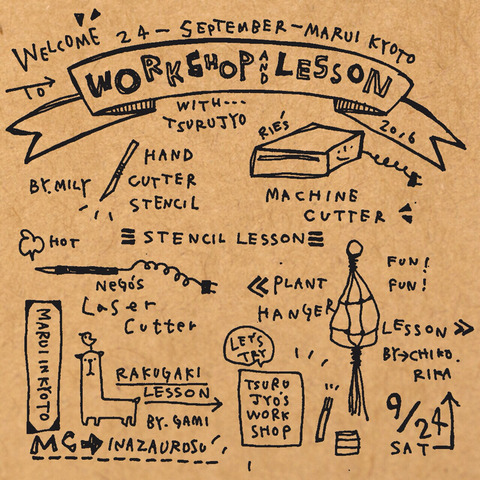 WELCOME
24 - SEPTEMBER - MARUI KYOTO
TO
WORKSHOP AND LESSON
WITH...
TSURUJYO
2016
RIE'S
BY. MILY
HAND
CUTTER
STENCIL
MACHINE
CUTTER
HOT
STENCIL LESSON
NEGO'S
Laser
Cutter
PLANT
HANGER
FUN!
FUN!
LESSON
BY→CHIKO.
RIKA
MARUI IN KYOTO
LET'S
TRY
RAKUGAKI
LESSON
BY. GAMI
TSURU
JYO'S
WORK
SHOP
9/24
SAT
MC→INAZUROSU